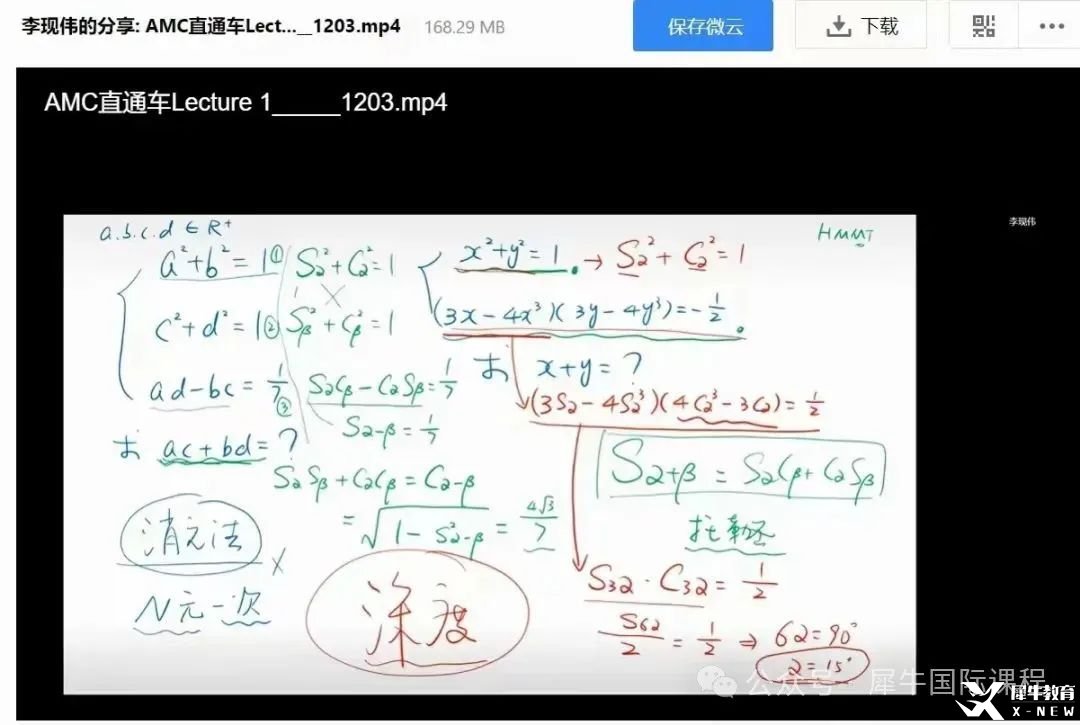 李现伟的分享: AMC直通车Lect...__1203.mp4 168.29 MB 保存微云 下载
AMC直通车Lecture 1_____1203.mp4
李现伟
a.b.c.d ∈ R⁺
a²+b²=1 ①
c²+d²=1 ②
ad-bc=1/7 ③
求 ac+bd=?
消元法 ×
N元一次
S₂²+C₂²=1
Sβ²+Cβ²=1
S₂Cβ-C₂Sβ=1/7
S₂-β=1/7
S₂Sβ+C₂Cβ=C₂-β
=√(1-S²₂-β)=4√3/7
深度
HMMT
x²+y²=1. → S₂²+C₂²=1
(3x-4x³)(3y-4y³)=-1/2.
求 x+y=?
(3S₂-4S₂³)(4C₂³-3C₂)=1/2
S₂+β=S₂Cβ+C₂Sβ
托勒密
S₃₂·C₃₂=1/2
S₆₂/2=1/2 ⇒ 62=90°
2=15°
公众号·犀牛国际课程
犀牛教育
X-NEW